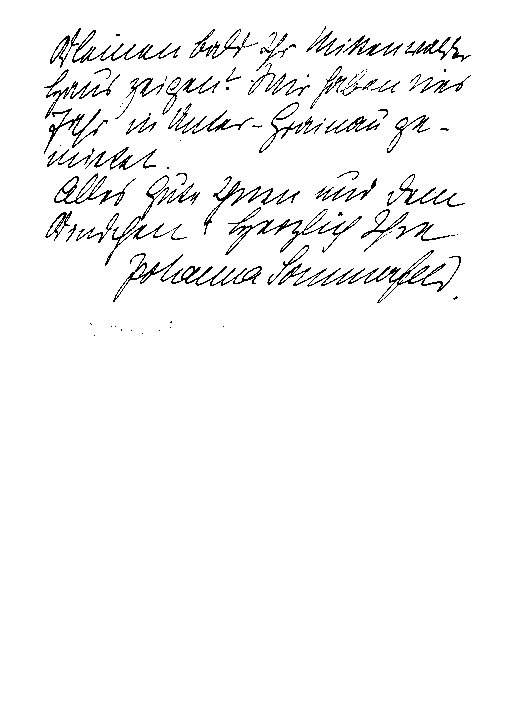 Kleinen bald Ihr Mittenwalder
Haus zeigen? Wir haben dies
Jahr in Unter-Grainau ge-
mietet.
Alles Gute Ihnen und dem
Kindchen! Herzlich Ihre
Johanna Sommerfeld.